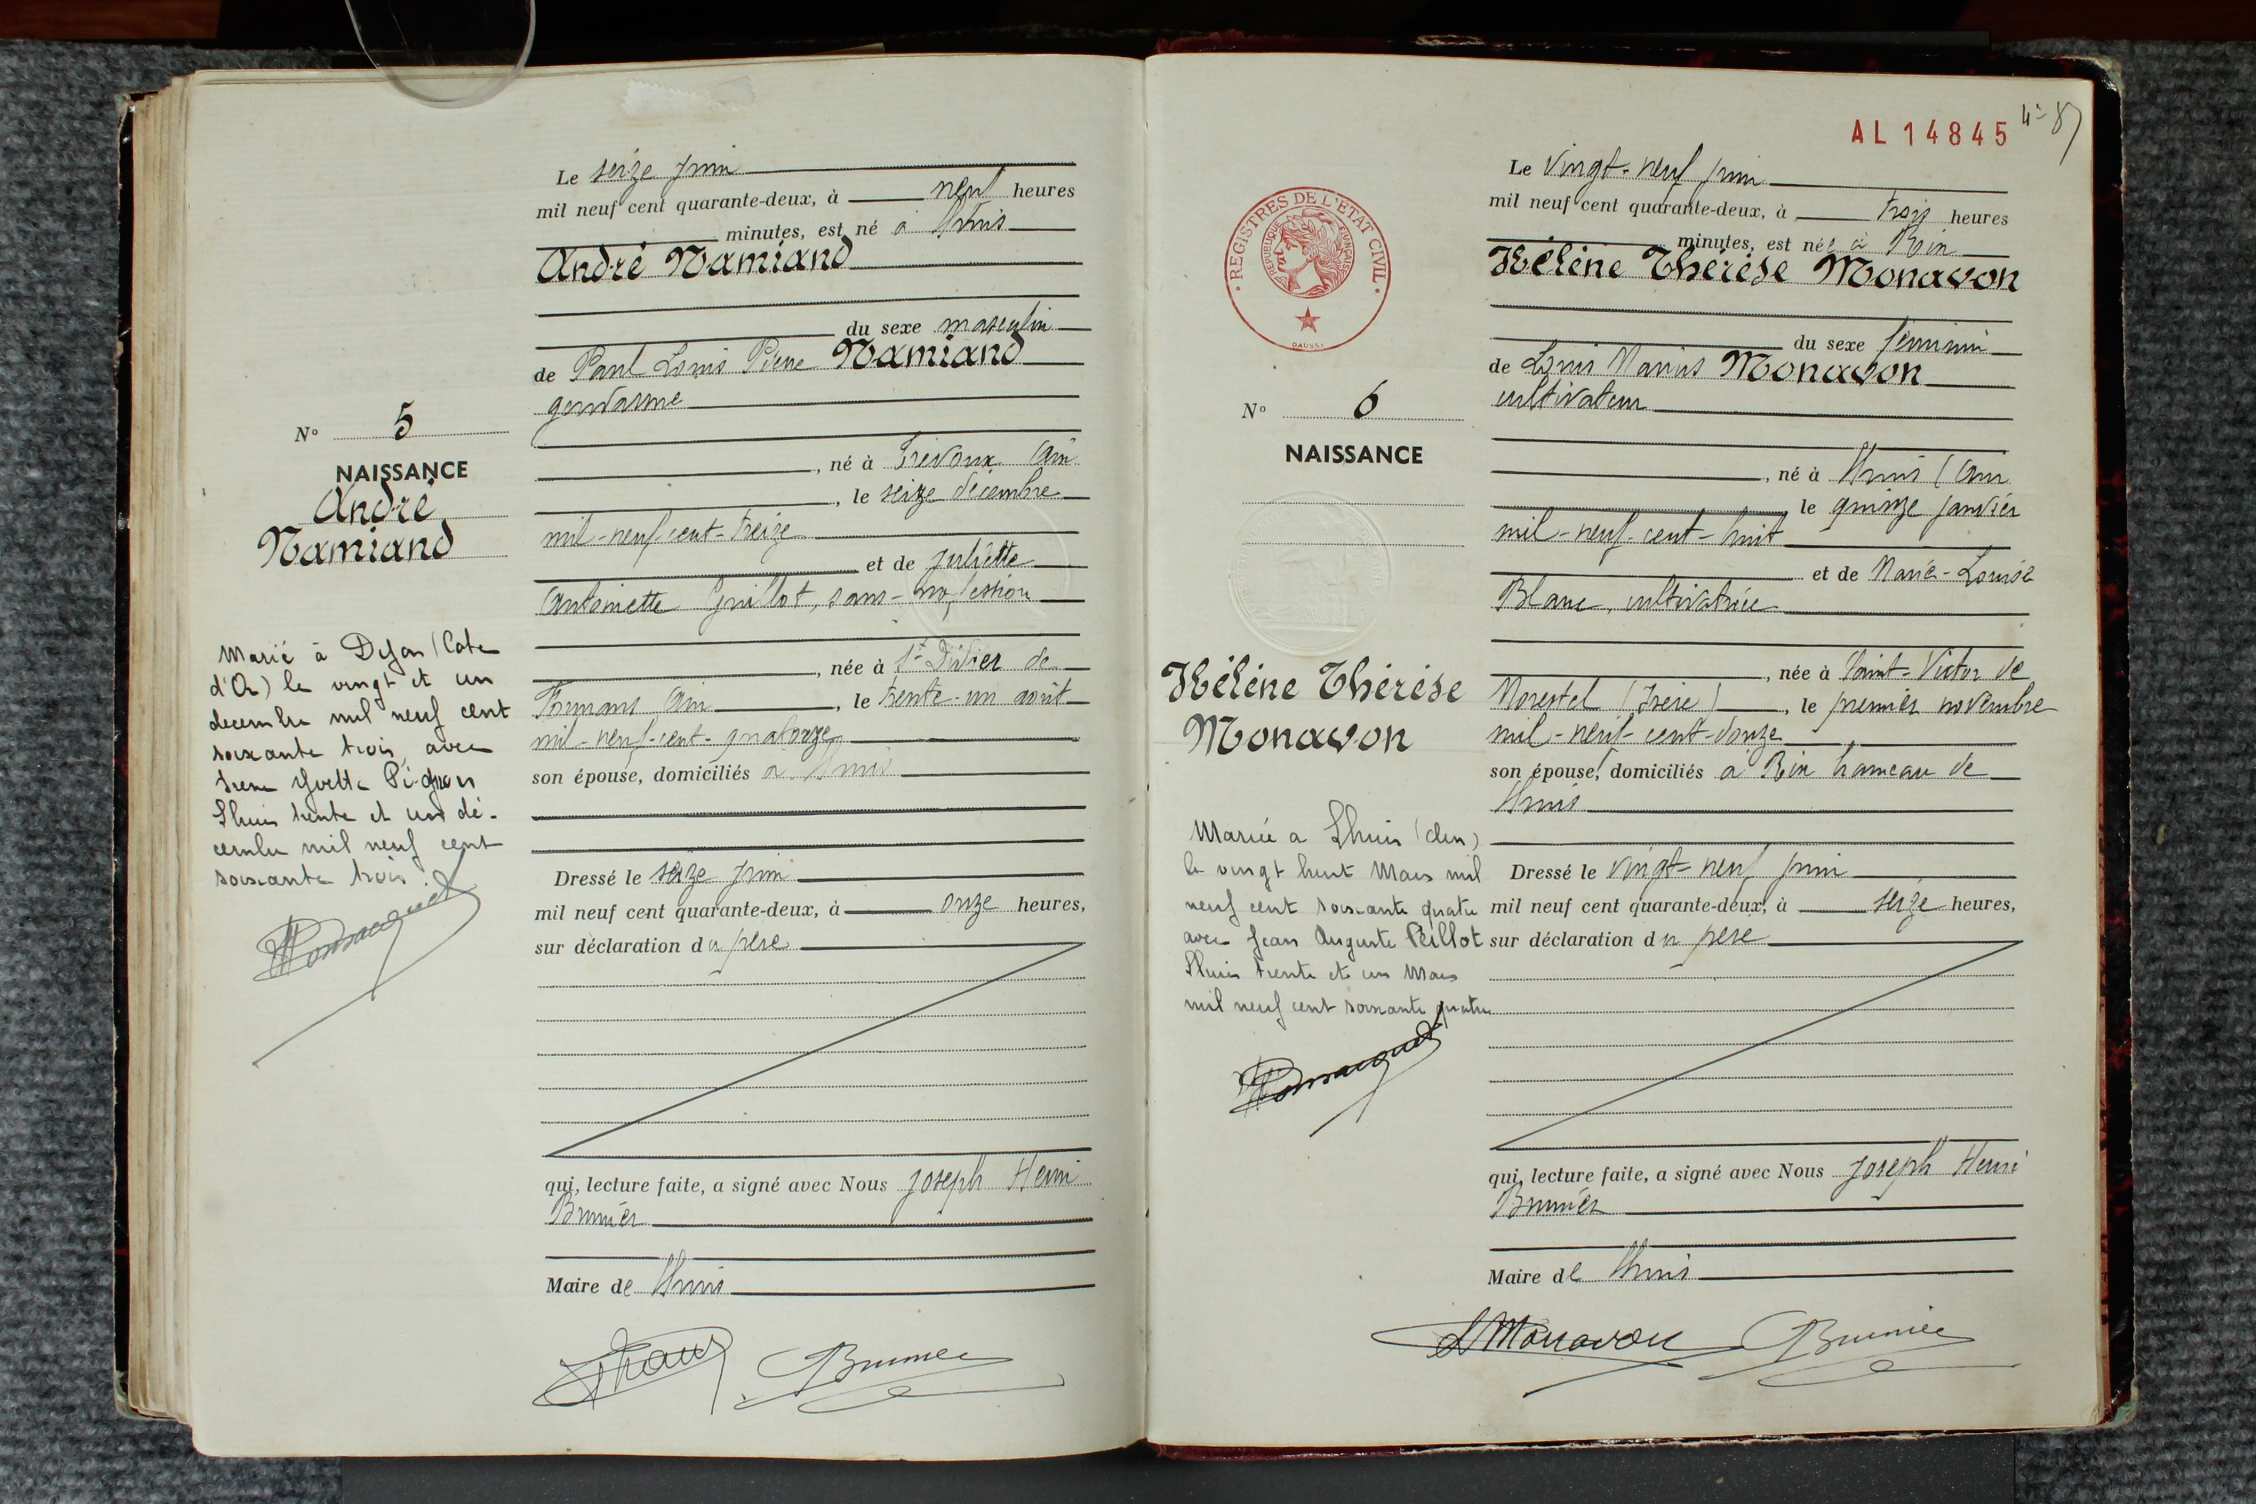 Le seize juin
mil neuf cent quarante-deux, à neuf heures
minutes, est né à Lhuis
André Ramiand
du sexe masculin
de Paul Louis Pierre Ramiand
gendarme
, né à Trévoux Ain
, le seize décembre
mil-neuf-cent-treize
et de Juliette
Antoinette Guillot, sans-profession
, née à St Didier de
Formans Ain , le trente-un août
mil-neuf-cent-quatorze
son épouse, domiciliés à Lhuis
Dressé le seize juin
mil neuf cent quarante-deux, à onze heures,
sur déclaration du père
qui, lecture faite, a signé avec Nous Joseph Henri
Brunier
Maire de Lhuis
Brunier
No 5
NAISSANCE
André
Ramiand
Marié à Dijon (Cote
d'Or) le vingt et un
decembre mil neuf cent
soixante trois avec
Irene Yvette
Lhuis trente et un dé-
cembre mil neuf cent
soixante trois.
AL 14845
REGISTRES DE L'ETAT CIVIL
REPUBLIQUE FRANÇAISE
No 6
NAISSANCE
Hélène Thérèse
Monavon
Mariée a Lhuis (Ain)
le vingt huit Mars mil
neuf cent soixante quatre
avec Jean Auguste Peillot
Lhuis trente et un Mars
mil neuf cent soixante quatre
Le vingt-neuf juin
mil neuf cent quarante-deux, à trois heures
minutes, est née à Rix
Hélène Thérèse Monavon
du sexe féminin
de Louis Marius Monavon
cultivateur
, né à Lhuis (Ain
le quinze janvier
mil-neuf-cent-huit
et de Marie-Louise
Blanc, cultivatrice
, née à Saint-Victor de
Morestel (Isère) , le premier novembre
mil-neuf-cent-douze
son épouse, domiciliés à Rix hameau de
Lhuis
Dressé le vingt-neuf juin
mil neuf cent quarante-deux, à seize heures,
sur déclaration du père
qui, lecture faite, a signé avec Nous Joseph Henri
Brunier
Maire de Lhuis
L Monavon Brunier